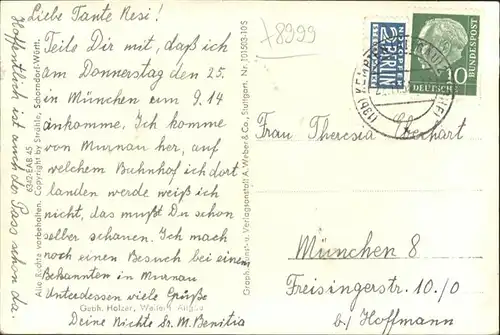 Liebe Tante Resi!
Teile Dir mit, daß ich
am Donnerstag den 25.
in München um 9.14
ankomme. Ich komme
von Murnau her, auf
welchem Bahnhof ich dort
landen werde weiß ich
nicht, das mußt Du schon
selber schauen. Ich mach
noch einen Besuch bei einem
Bekannten in Murnau
Unterdessen viele Grüße
Deine Nichte Sr. M. Benitia
Hoffentlich ist auch der Pass schon da.
6342 EAB 45
Alle Rechte vorbehalten. Copyright by Strähle, Schorndorf-Württ.
Graph. Kunst- u. Verlagsanstalt A. Weber & Co., Stuttgart. Nr. 101503-10 S
+8999
NOTOPFER
2 BERLIN
STEUERMARKE
10
DEUTSCHE
BUNDESPOST
Frau Theresia Eberhart
München 8
Freisingerstr. 10./0
b/ Hoffmann